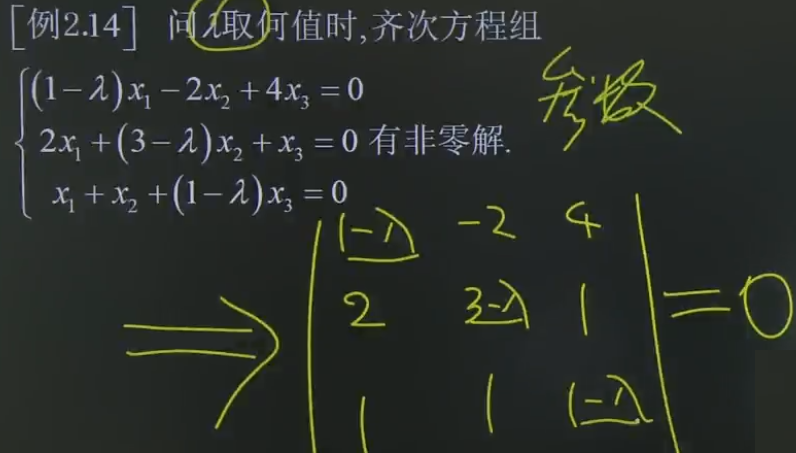 [例2.14] 问λ取何值时,齐次方程组
(1-λ)x₁-2x₂+4x₃=0
2x₁+(3-λ)x₂+x₃=0 有非零解.
x₁+x₂+(1-λ)x₃=0
参数
1-λ -2 4
2 3-λ 1 =0
1 1 1-λ